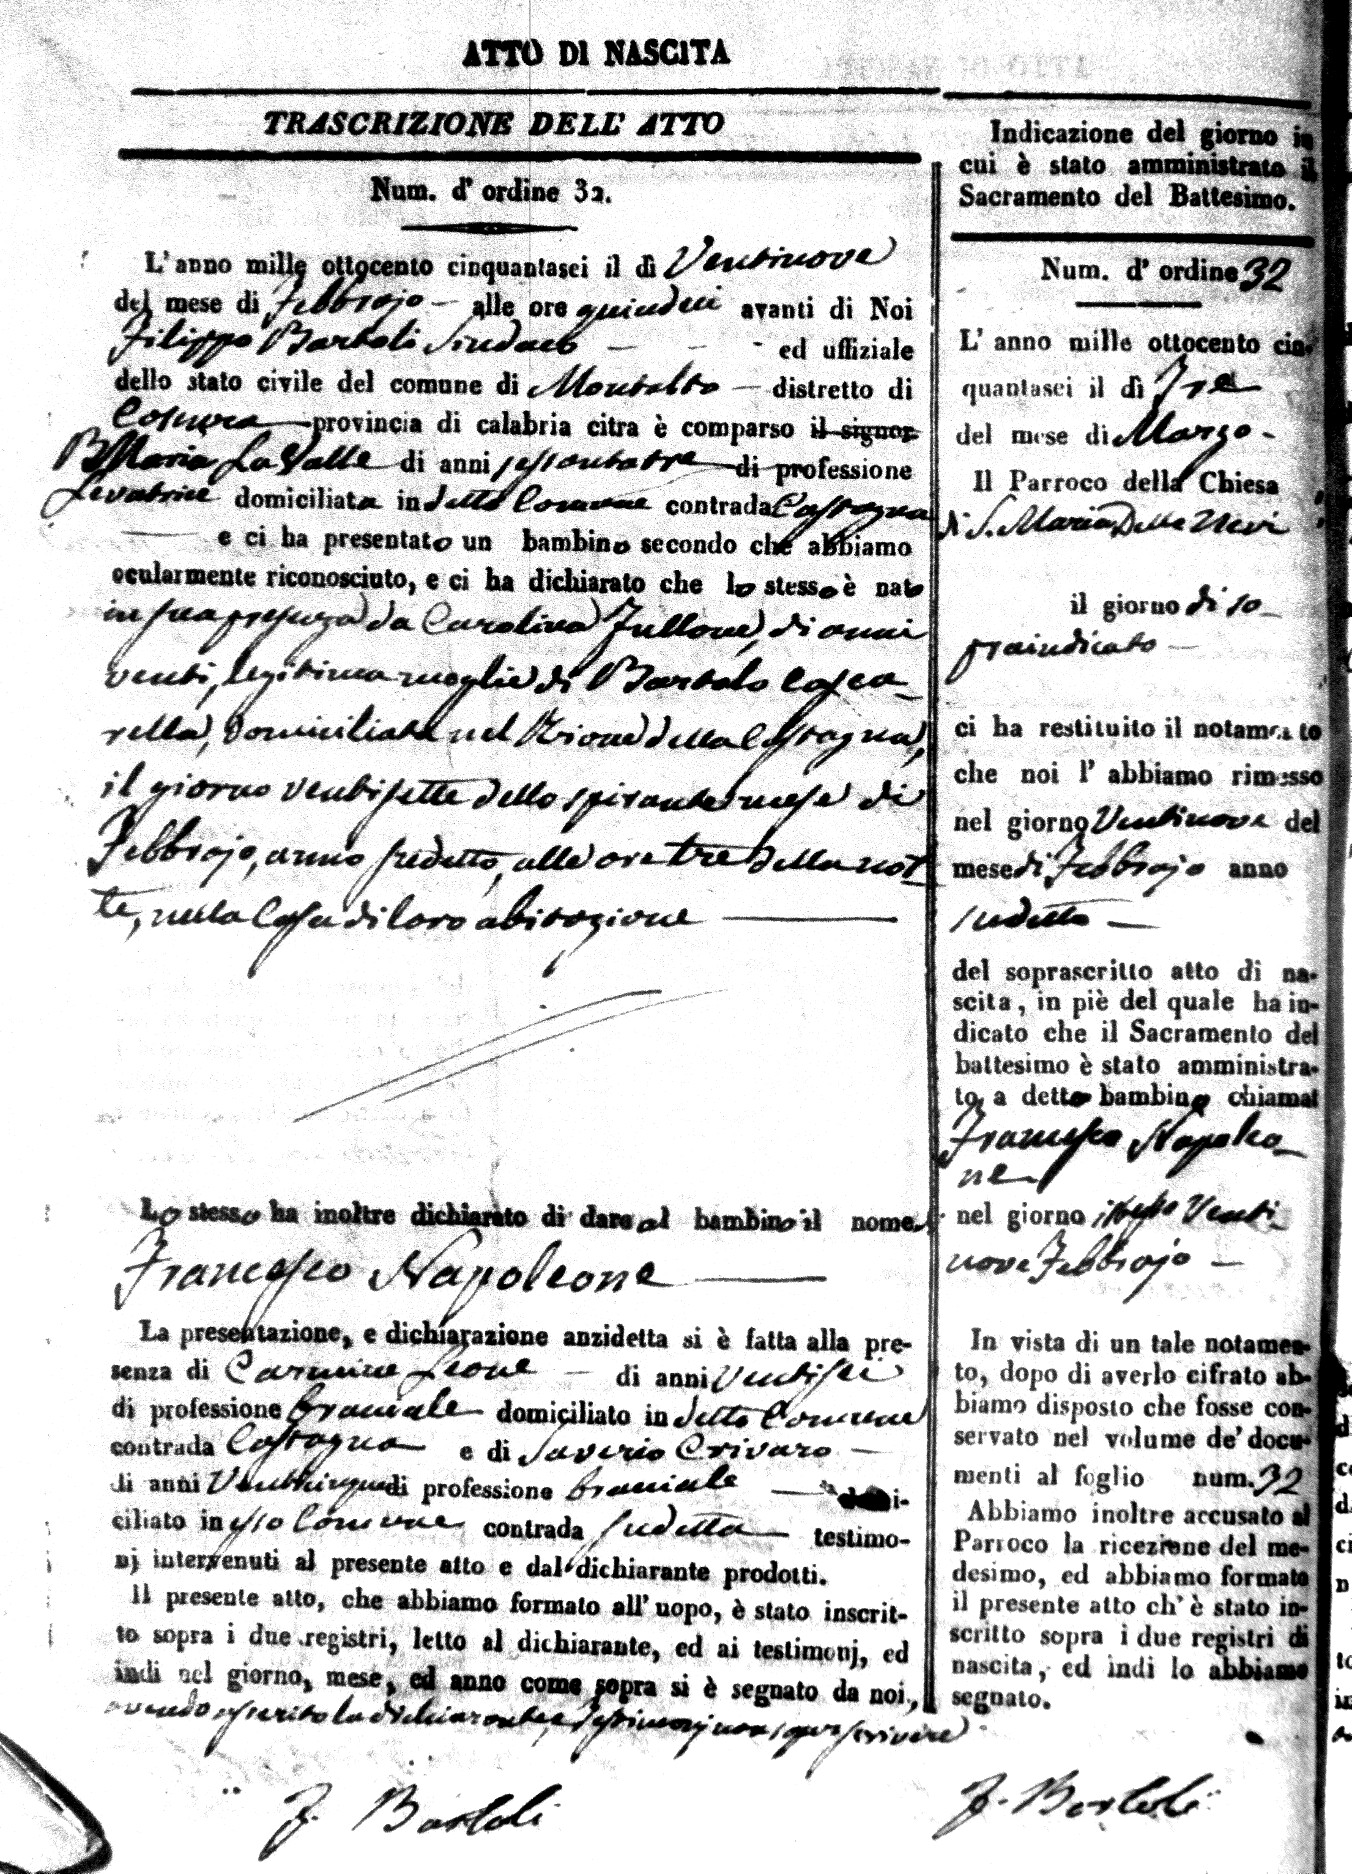 ATTO DI NASCITA
TRASCRIZIONE DELL' ATTO
Num. d' ordine 32.
L'anno mille ottocento cinquantasei il dì Ventinove
del mese di Febbrajo alle ore quindici avanti di Noi
Filippo Bartoli Sindaco ed uffiziale
dello stato civile del comune di Montalto distretto di
Cosenza provincia di calabria citra è comparso il signor
Maria La Valle di anni sessantatre di professione
Levatrice domiciliata in detto Comune contrada Castagna
e ci ha presentato un bambino secondo che abbiamo
ocularmente riconosciuto, e ci ha dichiarato che lo stesso è nato
in sua presenza da Carolina Fullone, di anni
venti, legitima moglie di Bartolo Casca_
rella, domiciliata nel Rione della Castagna,
il giorno ventisette dello spirante mese di
Febbrajo, anno sudetto, alle ore tre della not_
te, nella Casa di loro abitazione
Lo stesso ha inoltre dichiarato di dare al bambino il nome
Francesco Napoleone
La presentazione, e dichiarazione anzidetta si è fatta alla pre-
senza di Carmine Leone di anni Ventisei
di professione braciale domiciliato in detto Comune
contrada Castagna e di Saverio Crivaro
di anni Venticinque di professione braciale
ciliato in esso Comune contrada sudetta testimo-
nj intervenuti al presente atto e dal dichiarante prodotti.
Il presente atto, che abbiamo formato all' uopo, è stato inscrit-
to sopra i due registri, letto al dichiarante, ed ai testimonj, ed
indi nel giorno, mese, ed anno come sopra si è segnato da noi,
avendo asserito la dichiarante, e Testimonj non saper scrivere
F. Bartoli
Indicazione del giorno in
cui è stato amministrato il
Sacramento del Battesimo.
Num. d' ordine 32
L' anno mille ottocento cin-
quantasei il dì Tre
del mese di Marzo -
Il Parroco della Chiesa
di S. Maria Della Nevi
il giorno di so_
praindicato
ci ha restituito il notamento
che noi l' abbiamo rimesso
nel giorno Ventinove del
mese di Febbrajo anno
sudetto
del soprascritto atto di na-
scita, in piè del quale ha in-
dicato che il Sacramento del
battesimo è stato amministra-
to a detto bambino chiamat
Francesco Napoleo_
ne
nel giorno istesso Venti
nove Febbrajo
In vista di un tale notamen-
to, dopo di averlo cifrato ab-
biamo disposto che fosse con-
servato nel volume de' docu-
menti al foglio num. 32
Abbiamo inoltre accusato al
Parroco la ricezione del me-
desimo, ed abbiamo formato
il presente atto ch' è stato in-
scritto sopra i due registri di
nascita, ed indi lo abbiamo
segnato.
F. Bartoli